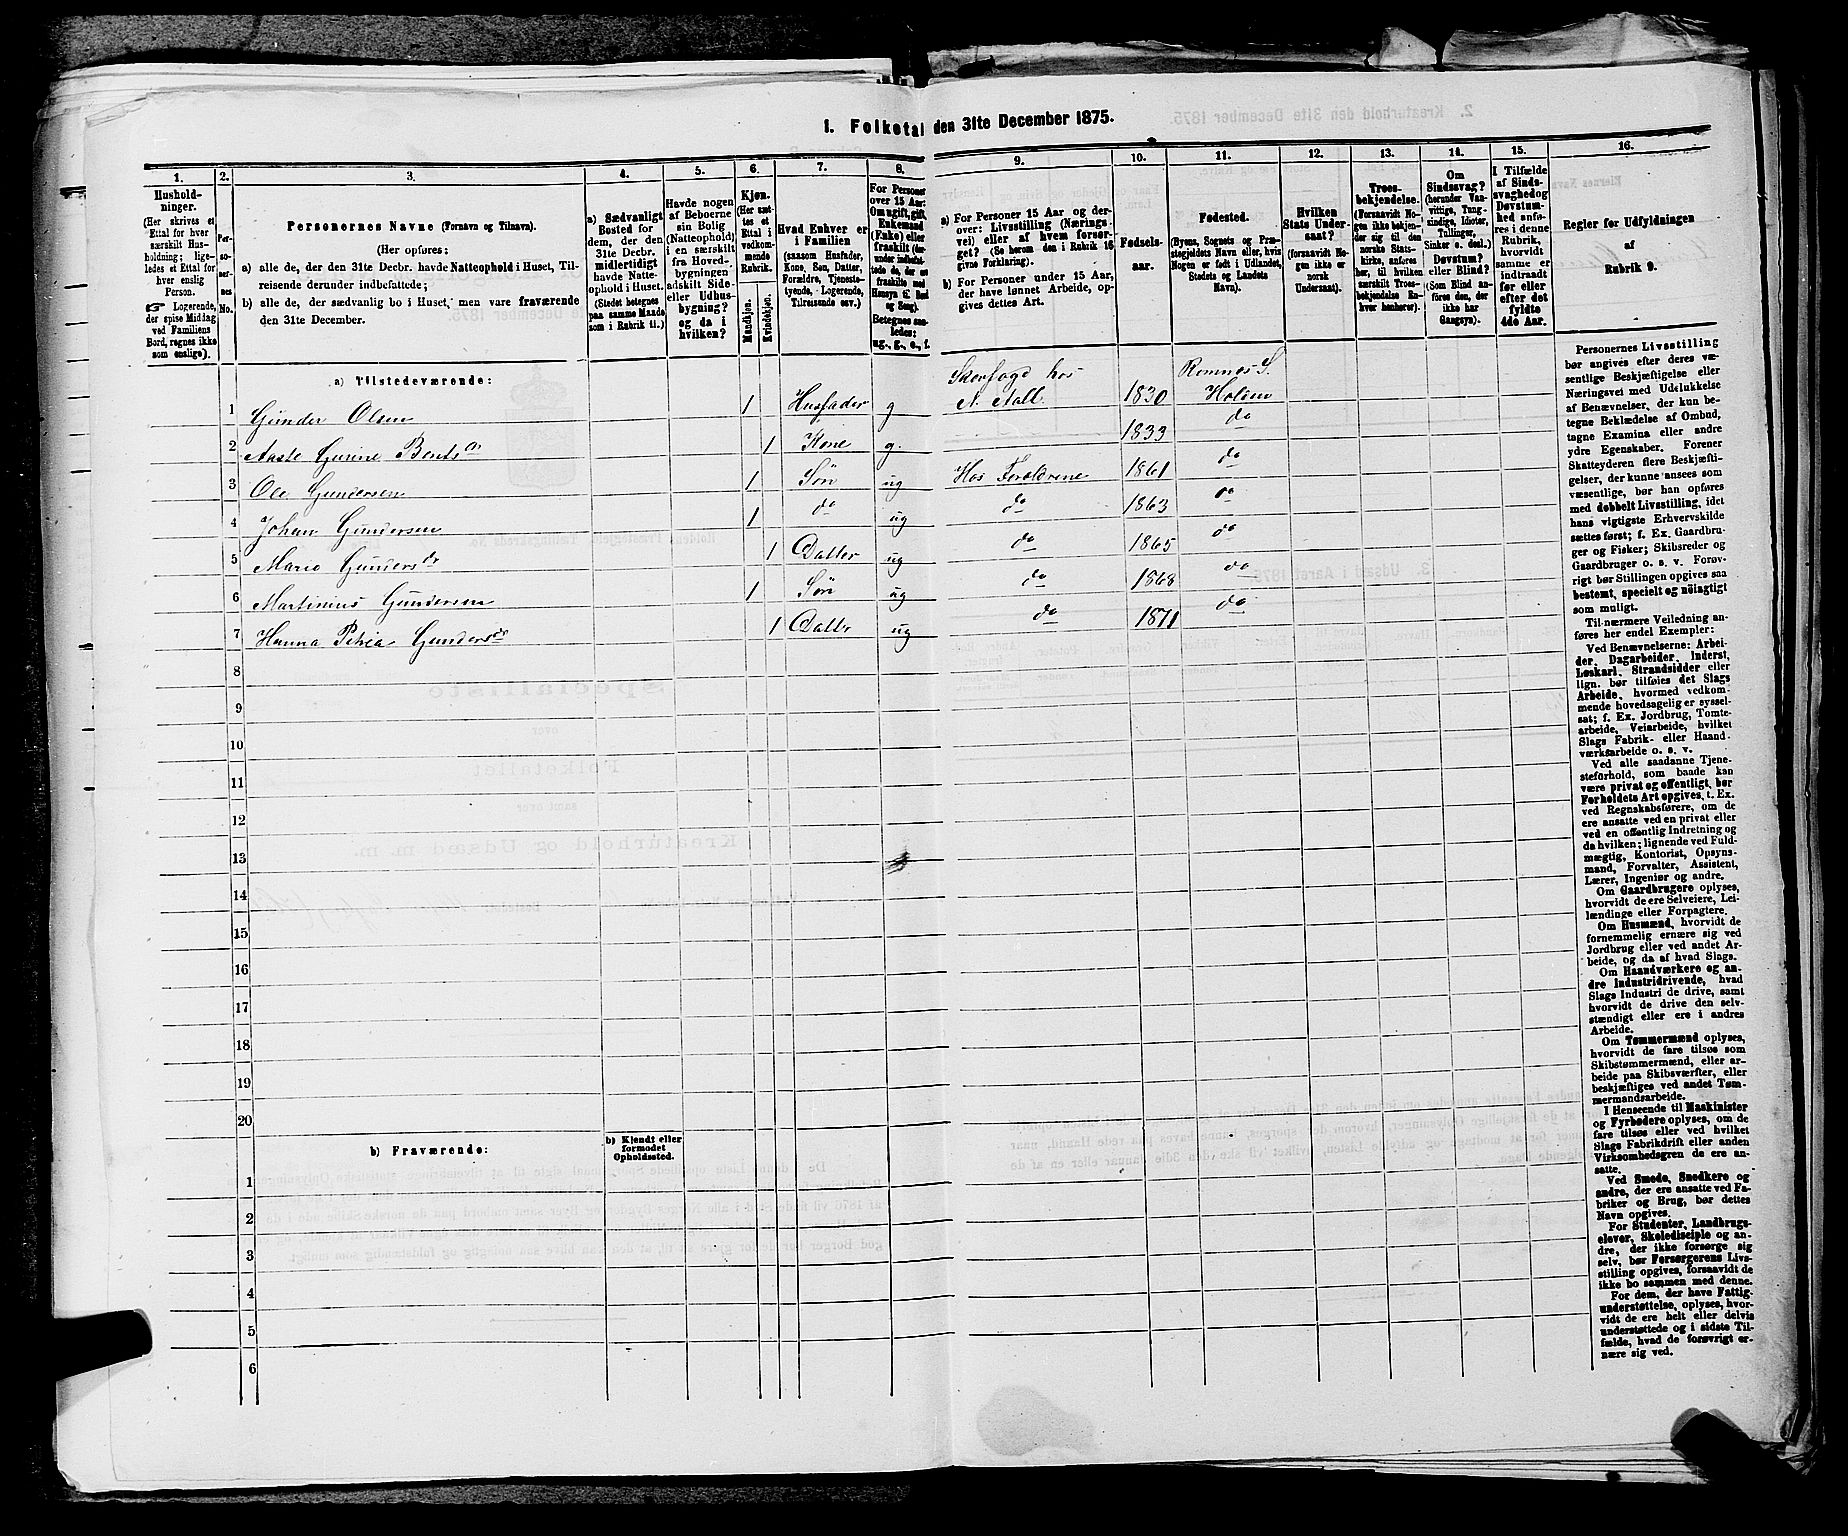 1. Folketal den 31te December 1875.
1.
2.
3.
4.
5.
6.
7.
8.
9.
10.
11.
12.
13.
14.
15.
16.
Hushold-
ninger.
(Her skrives et
Ettal for hver
særskilt Hus-
holdning; lige-
ledes et Ettal for
hver enslig
Person.
Logerende,
der spise Middag
ved Familiens
Bord, regnes ikke
som enslige).
Per-
so-
ner-
nes
No.
Personernes Navne (Fornavn og Tilnavn).
(Her opføres:
a) alle de, der den 31te Decbr. havde Natteophold i Huset, Til-
reisende derunder indbefattede;
b) alle de, der sædvanlig bo i Huset, men vare fraværende
den 31te December.
a) Sædvanligt
Bosted for
dem, der den
31te Decbr.
midlertidigt
havde Natte-
ophold i Huset.
(Stedet betegnes
paa samme Maade
som i Rubrik 11.)
Havde nogen
af Beboerne
sin Bolig
(Natteophold)
i en særskilt
fra Hoved-
bygningen
adskilt Side-
eller Udhus-
bygning?
og da i
hvilken?
Kjøn.
(Her sæt-
tes et
Ettal i
vedkom-
mende
Rubrik.
Mandkjøn.
Kvindekjøn.
Hvad Enhver er
i Familien
(saasom Husfader,
Kone, Søn, Datter,
Forældre, Tjeneste-
tyende, Logerende,
Tilreisende osv.)
For Personer
over 15 Aar:
Om ugift, gift,
Enkemand
(Enke) eller
fraskilt
Betegnes saa-
ledes:
ug., g., e., f.
a) For Personer 15 Aar og der-
over: Livsstilling (Nærings-
vei) eller af hvem forsør-
get? (Se herom den i Rubrik 16
givne Forklaring).
b) For Personer under 15 Aar,
der have lønnet Arbeide, op-
gives dettes Art.
Fødsels-
aar.
Fødested.
(Byens, Sognets og Præ-
stegjeldets Navn eller, hvis
Nogen er født i Udlandet,
Stedets og Landets
Navn).
Hvilken
Stats Under-
saat?
(foraavidt No-
gen ikke er
norsk
Undersaat).
Troes-
bekjendelse.
(Forsaavidt No-
gen ikke bekjen-
der sig til den
norske Stats-
kirke, anføres
her, til hvilken
særskilt Troes-
bekjendelse En-
hver henhører).
Om
Sindssvag?
(herunder Van-
vittige, Tung-
sindige, Idioter,
Tullinger,
Sinker o. desl.)
Døvstum?
eller Blind?
(Som Blind an-
føres den, der
ikke har
Gangsyn).
I Tilfælde
af Sinds-
svaghed og
Døvstum-
hed anfø-
res i denne
Rubrik,
hvorvidt
samme er
indtraadt
før eller
efter det
fyldte
4de Aar.
Regler for Udfyldningen
af
Rubrik 9.
a) Tilstedeværende:
1 Gunder Olsen 1 Husfader g Skovfogd hos N. Aall 1830 Romnes S. Holden
2 Aaste Gurine Bentsdr 1 Kone g. 1833 do
3 Ole Gundersen 1 Søn ug Hos Forældrene 1861 do
4 Johan Gundersen 1 do ug do 1863 do
5 Maria Gundersdr 1 Datter ug do 1865 do
6 Martinius Gundersen 1 Søn ug do 1868 do
7 Hanna Petrea Gundersdr 1 Datter ug do 1871 do
8
9
10
11
12
13
14
15
16
17
18
19
20
b) Fraværende:
b) Kjendt eller
formodet
Opholdssted.
1
2
3
4
5
6
Personernes Livsstilling
bør angives efter deres væ-
sentlige Beskjæftigelse eller
Næringsvei med Udelukkelse
af Benævnelser, der kun be-
tegne Beklædelse af Ombud,
tagne Examina eller andre
ydre Egenskaber. Forener
Skatteyderen flere Beskjæfti-
gelser, der kunne ansees som
væsentlige, bør han opføres
med dobbelt Livsstilling, idet
hans vigtigste Erhvervskilde
sættes først; f. Ex. Gaardbru-
ger og Fisker; Skibsreder og
Gaardbruger o. s. v. Forøv-
rigt bør Stillingen opgives saa
bestemt, specielt og nöiagtigt
som muligt.
Til nærmere Veiledning an-
føres her endel Exempler:
Ved Benævnelserne: Arbei-
der, Dagarbeider, Inderst,
Løskarl, Strandsidder eller
lign. bør tilføies det Slags
Arbeide, hvormed vedkom-
mende hovedsagelig er syssel-
sat; f. Ex. Jordbrug, Tomte-
arbeide, Veiarbeide, hvilket
Slags Fabrik- eller Haand-
værksarbeide o. s. v.
Ved alle saadanne Tjene-
steforhold, som baade kan
være privat og offentligt, bør
Forholdets Art opgives, t. Ex.
ved Regnskabsførere, om de
ere ansatte ved en privat eller
ved en offentlig Indretning og
da hvilken; lignende ved Fuld-
mægtig, Kontorist, Opsyns-
mand, Forvalter, Assistent,
Lærer, Ingeniør og andre.
Om Gaardbrugere oplyses,
hvorvidt de ere Selveiere, Lei-
lændinge eller Forpagtere.
Om Husmænd, hvorvidt de
fornemmelig ernære sig ved
Jordbrug eller ved andet Ar-
beide, og da af hvad Slags.
Om Haandværkere og an-
dre Industridrivende, hvad
Slags Industri de drive, samt
hvorvidt de drive den selv-
stændigt eller ere i andres
Arbeide.
Om Tømmermænd oplyses,
hvorvidt de fare tilsøs som
Skibstømmermænd, eller ar-
beide paa Skibsværfter, eller
beskjæftiges ved andet Tøm-
mermandsarbeide.
I Henseende til Maskinister
og Fyrbødere oplyses, om de
fare tilsøs eller ved hvilket
Slags Fabrikdrift eller anden
Virksomhedsgren de ere an-
satte.
Ved Smede, Snedkere og
andre, der ere ansatte ved Fa-
briker og Brug, bør dettes
Navn opgives.
For Studenter, Landbrugs-
elever, Skoledisciple og an-
dre, der ikke forsørge sig
selv, bør Forsørgerens Livs-
stilling opgives, forsaavidt de
ikke bo sammen med denne.
For dem, der have Fattig-
understøttelse, oplyses, hvor-
vidt de ere helt eller delvis
understøttede og i sidste Til-
fælde, hvad de forøvrigt er-
nære sig ved.